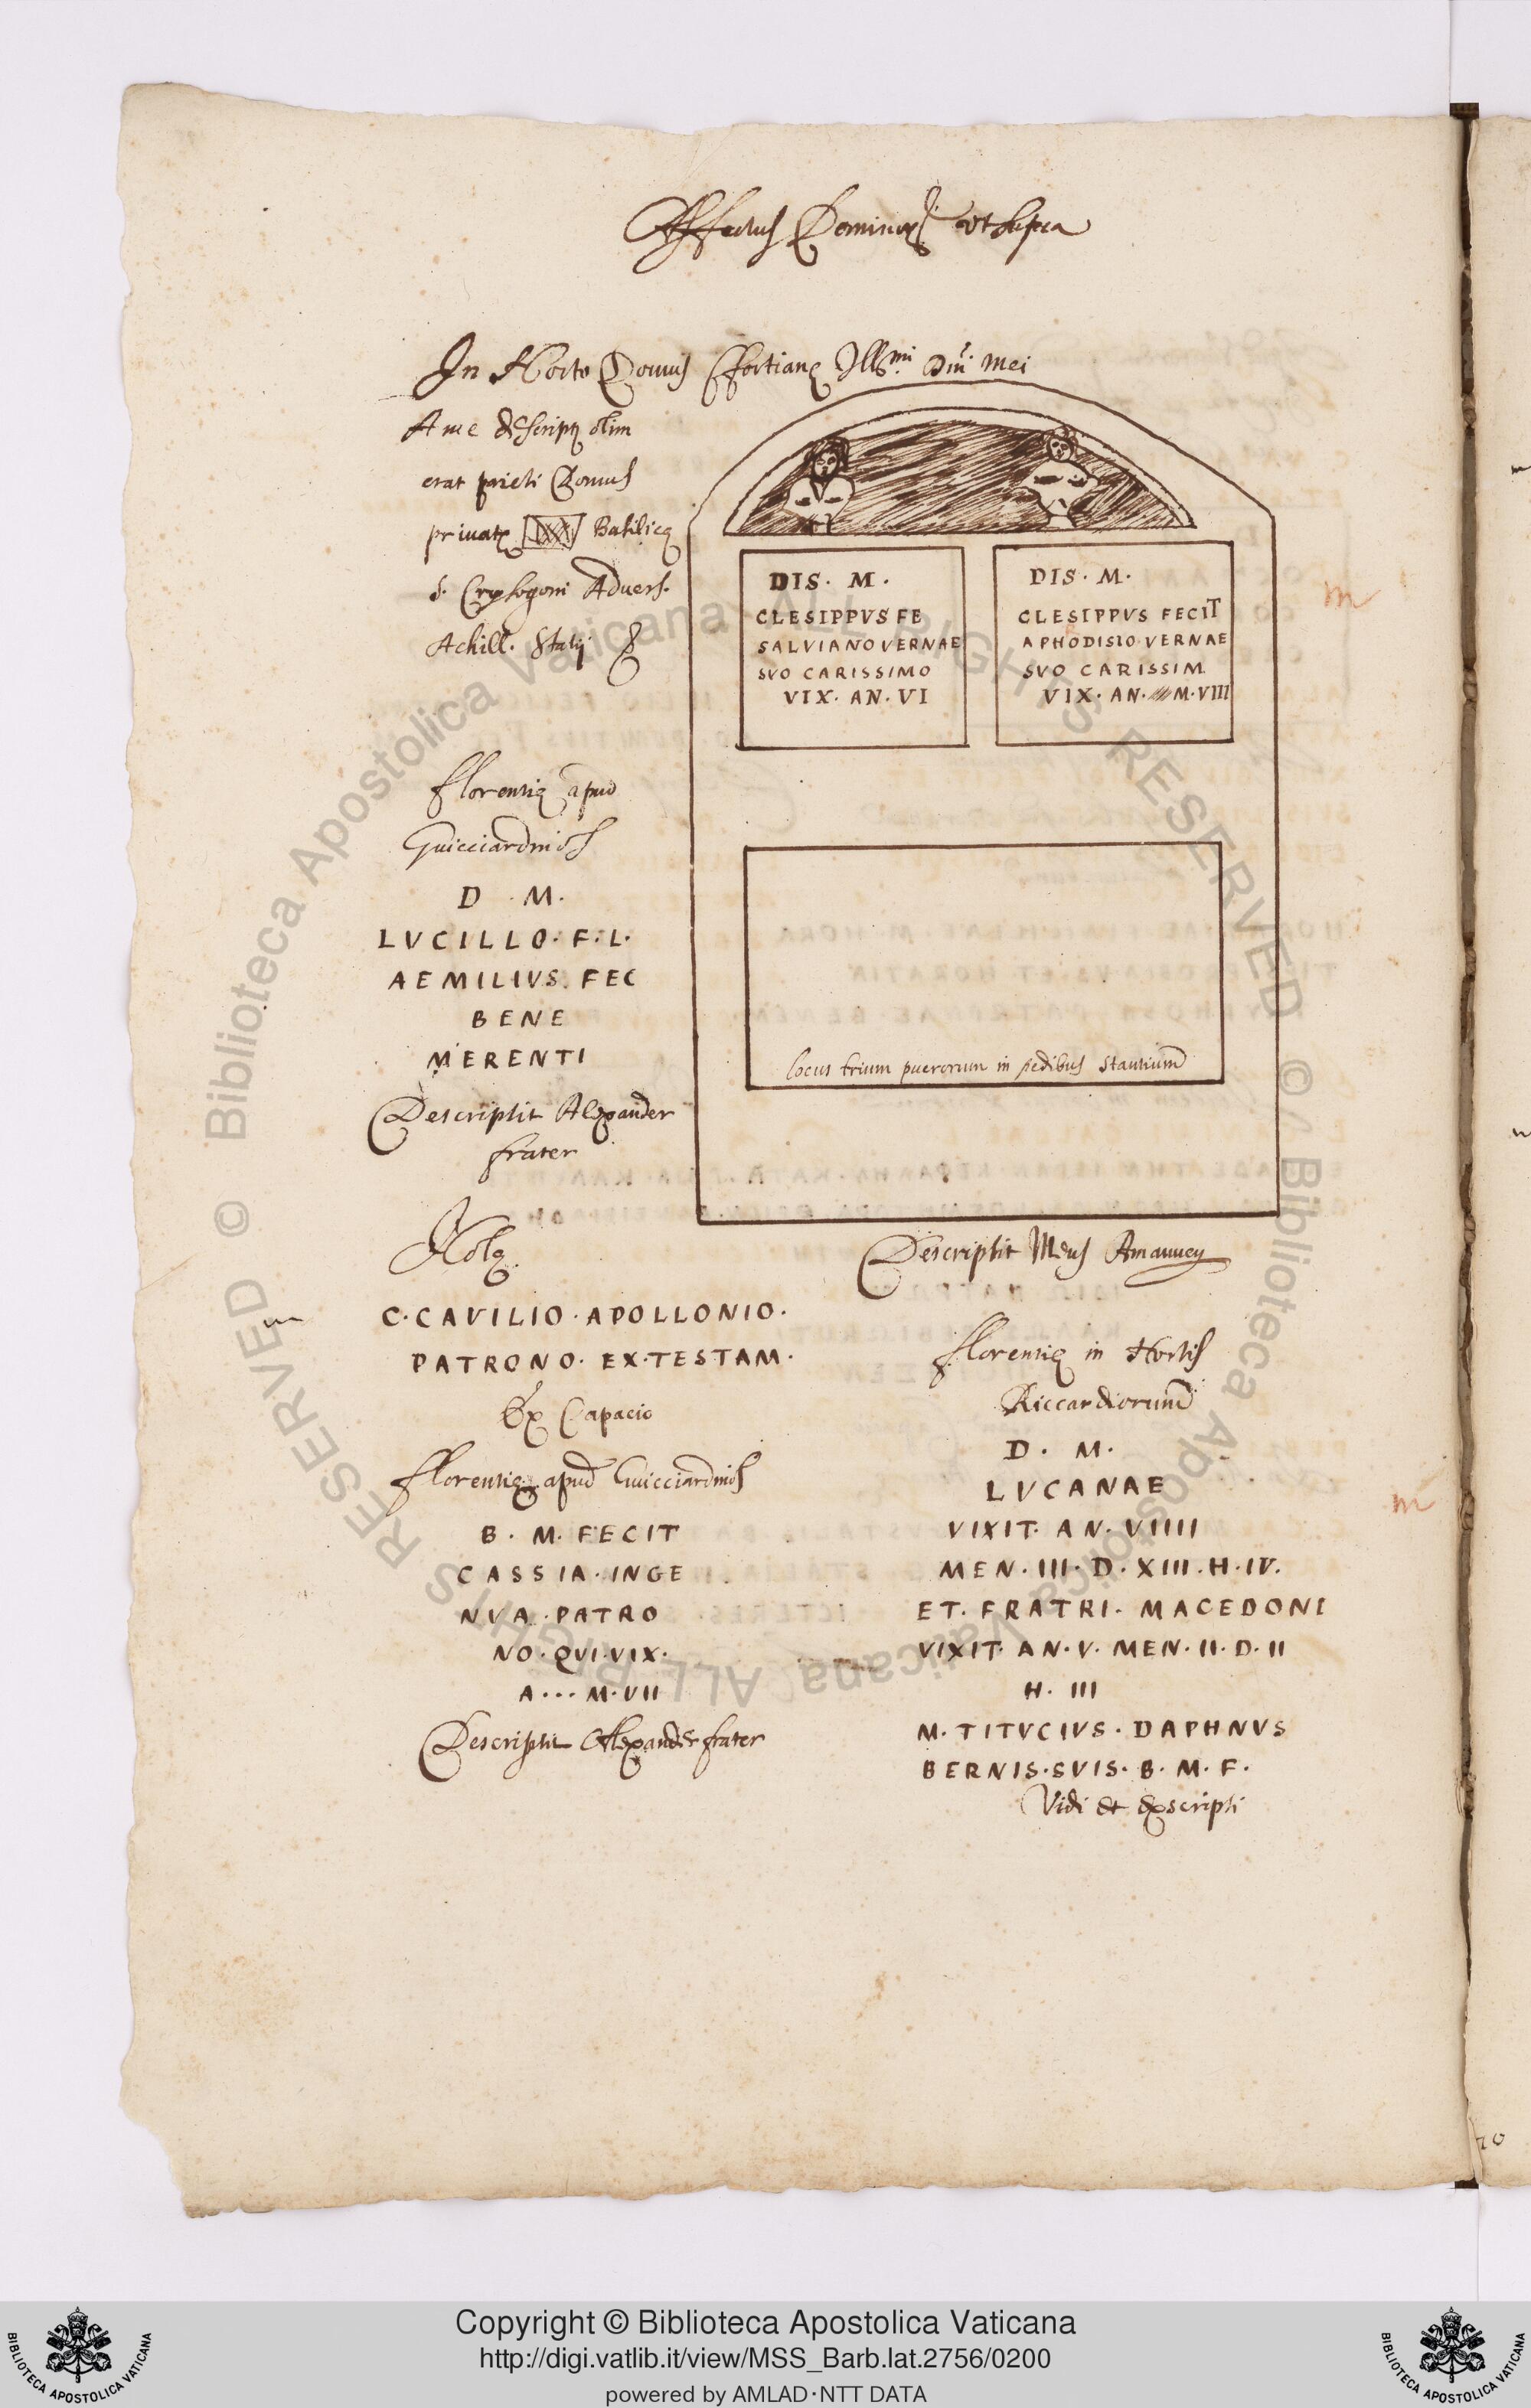 Affectus Dominorũ ut supra
In Horto Domus Sfortianę Illmi Dni mei
A me descripta olim
erat parieti Domus
privatę Basilicę
S. Crysogoni Advers.
Achill. Statij
DIS. M.
CLESIPPVS FE
SALVIANO VERNAE
SVO CARISSIMO
VIX. AN. VI
DIS. M.
CLESIPPVS FECIT
APHODISIO VERNAE
SVO CARISSIM
VIX. AN. M. VIII
locus trium puerorum in pedibus stantium
Descripsit Meus Amanuen
Florentię apud
Guicciardinios
D . M.
LVCILLO. F. L.
AEMILIVS. FEC
BENE
MERENTI
Descripsit Alexander
frater
Nolę
C. CAVILIO. APOLLONIO.
PATRONO. EX. TESTAM.
Ex Capacio
Florentię apud Guicciardinios
B. M. FECIT
CASSIA. INGE
NVA. PATRO
NO. QVI. VIX.
A... M. VII
Descripsit Alexander frater
Florentię in Hortis
Riccardiorum
D. M.
LVCANAE
VIXIT. AN. VIIII
MEN. III. D. XIII. H. IV.
ET. FRATRI. MACEDONI
VIXIT. AN. V. MEN. II. D. II
H. III
M. TITVCIVS. DAPHNVS
BERNIS. SVIS. B. M. F.
Vidi et exscripsi
Copyright © Biblioteca Apostolica Vaticana
http://digi.vatlib.it/view/MSS_Barb.lat.2756/0200
powered by AMLAD·NTT DATA
BIBLIOTECA APOSTOLICA VATICANA
BIBLIOTECA APOSTOLICA VATICANA
© Biblioteca Apostolica Vaticana ALL RIGHTS RESERVED
© Biblioteca Apostolica Vaticana ALL RIGHTS RESERVED